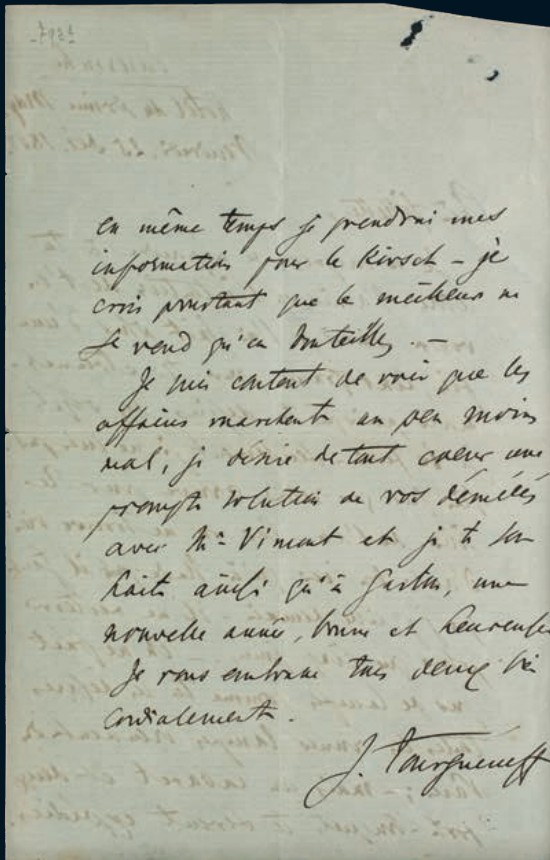 en même temps je prendrai mes
informations pour le Kirsch – je
crois pourtant que le meilleur ne
se vend qu'en bouteilles. –
Je suis content de voir que les
affaires marchent un peu moins
mal, je désire de tout coeur une
prompte solution de vos démêlés
avec Mr Vimont et je te sou
haite ainsi qu'à Gaston, une
nouvelle année, bonne et heureuse
Je vous embrasse tous deux bien
cordialement.
J. Tourgueneff